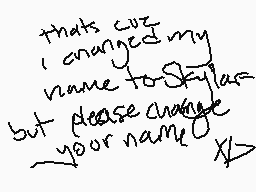 thats cuz
i changed my
name to Skylar
but please change
your name
XD